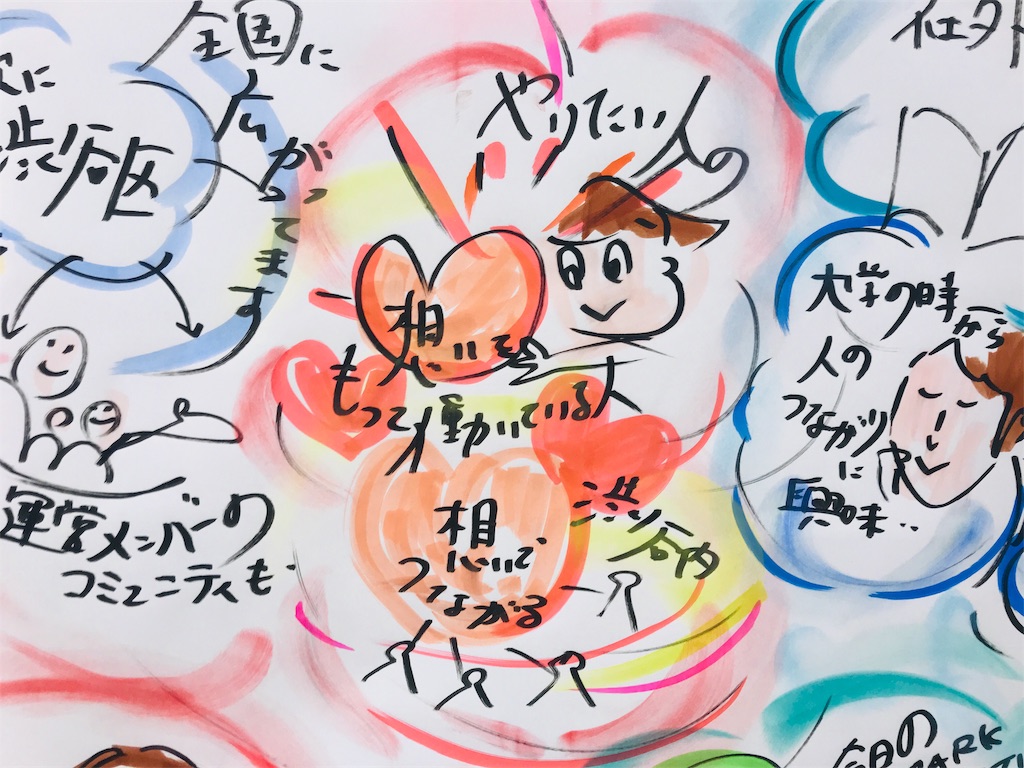 全国に
広がって
ます
次に
渋谷区
運営メンバーの
コミュニティも
やりたい人の
想いを
もって働いている人
想いで
つながる
渋谷や
大学の時
から
人の
つながり
に
興味..
今日の
PARK